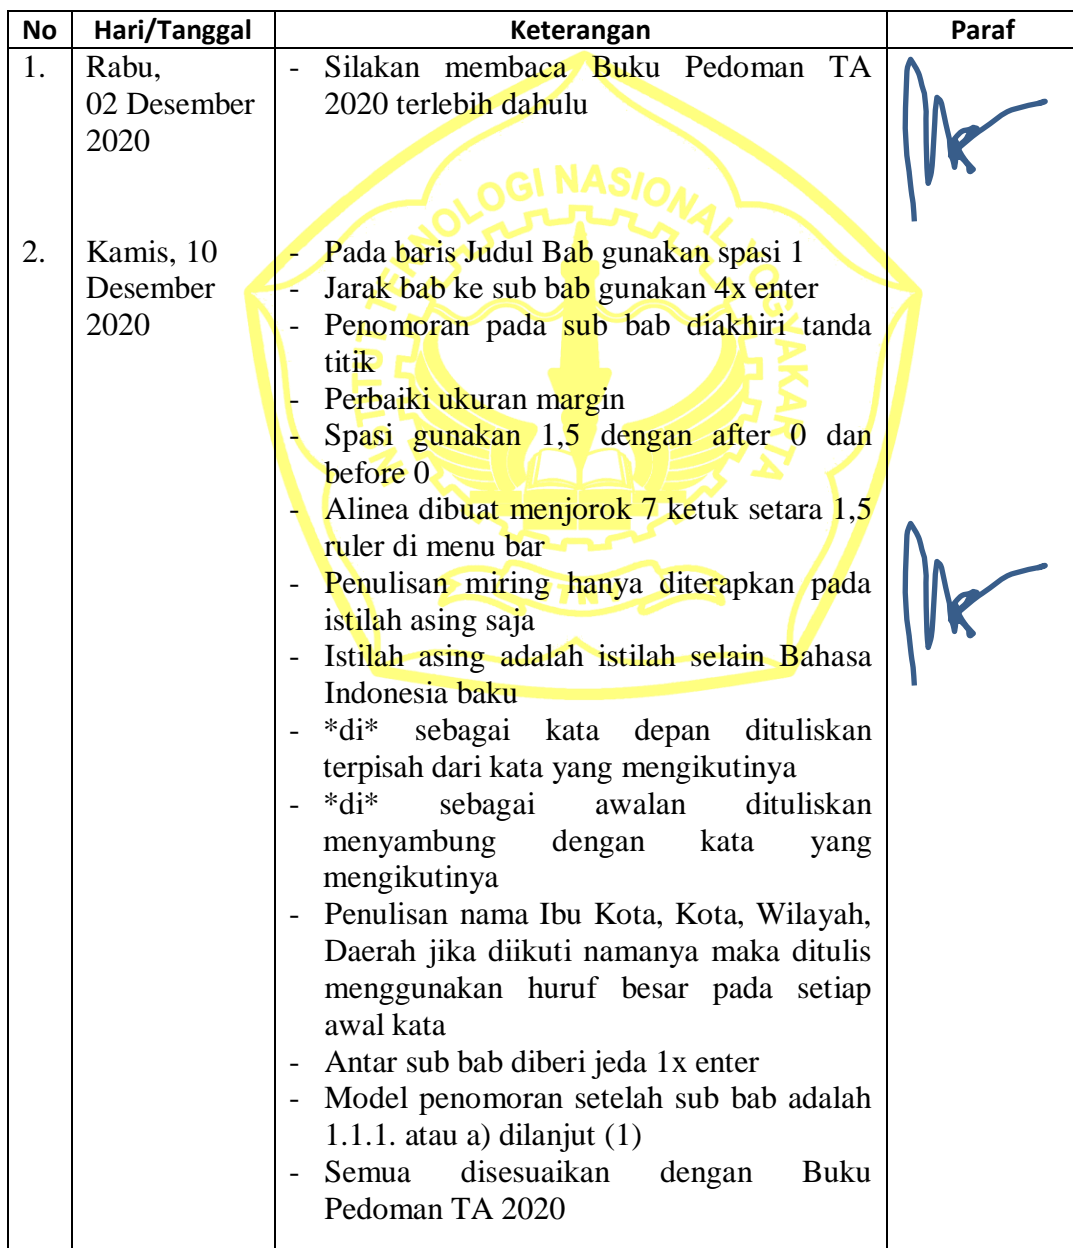 No Hari/Tanggal Keterangan Paraf
1. Rabu, - Silakan membaca Buku Pedoman TA
02 Desember 2020 terlebih dahulu
2020
2. Kamis, 10 - Pada baris Judul Bab gunakan spasi 1
Desember - Jarak bab ke sub bab gunakan 4x enter
2020 - Penomoran pada sub bab diakhiri tanda
titik
- Perbaiki ukuran margin
- Spasi gunakan 1,5 dengan after 0 dan
before 0
- Alinea dibuat menjorok 7 ketuk setara 1,5
ruler di menu bar
- Penulisan miring hanya diterapkan pada
istilah asing saja
- Istilah asing adalah istilah selain Bahasa
Indonesia baku
- *di* sebagai kata depan dituliskan
terpisah dari kata yang mengikutinya
- *di* sebagai awalan dituliskan
menyambung dengan kata yang
mengikutinya
- Penulisan nama Ibu Kota, Kota, Wilayah,
Daerah jika diikuti namanya maka ditulis
menggunakan huruf besar pada setiap
awal kata
- Antar sub bab diberi jeda 1x enter
- Model penomoran setelah sub bab adalah
1.1.1. atau a) dilanjut (1)
- Semua disesuaikan dengan Buku
Pedoman TA 2020
INSTITUT TEKNOLOGI NASIONAL YOGYAKARTA